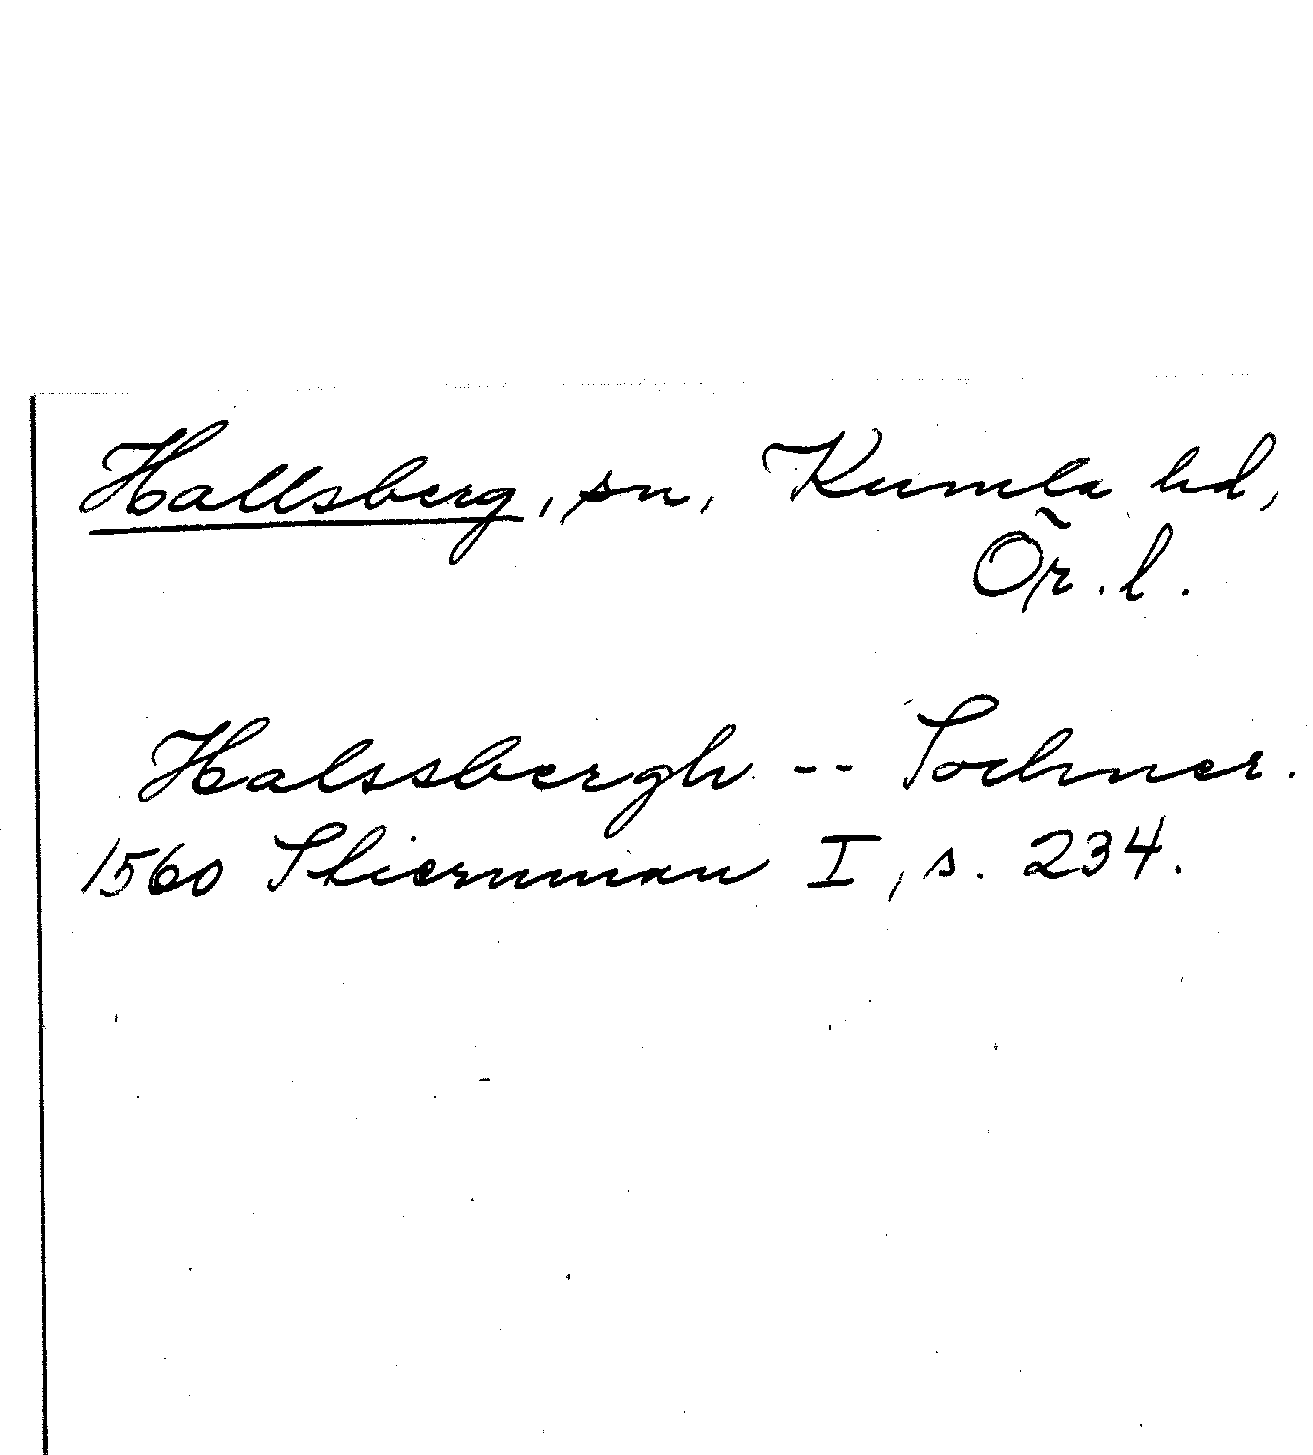 Hallsberg, sn, Kumla hd,
Ör. l.
Halssbergh -- Sochner.
1560 Stiernman I, s. 234.